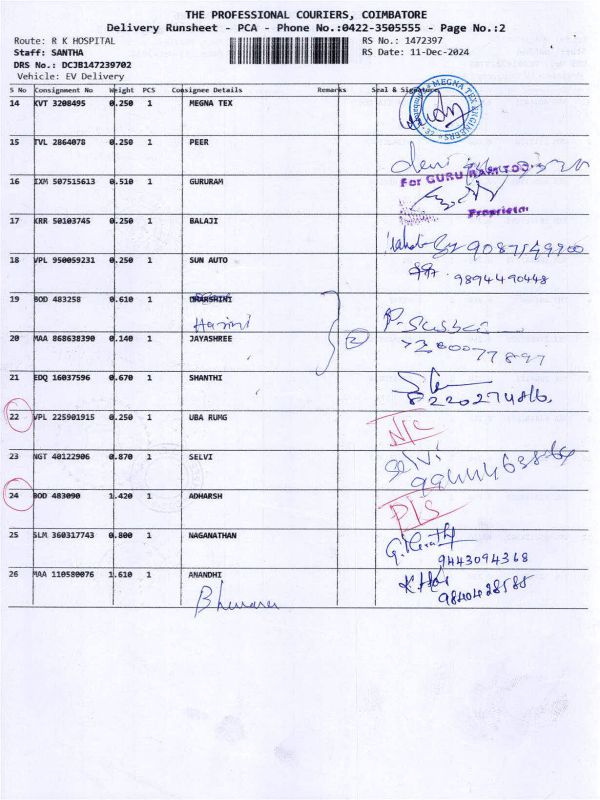 THE PROFESSIONAL COURIERS, COIMBATORE
Delivery Runsheet - PCA - Phone No.:0422-3505555 - Page No.:2
Route: R K HOSPITAL RS No.: 1472397
Staff: SANTHA RS Date: 11-Dec-2024
DRS No.: DCJB147239702
Vehicle: EV Delivery
S No Consignment No Weight PCS Consignee Details Remarks Seal & Signature
14 KVT 3208495 0.250 1 MEGNA TEX
MEGNA TEX ENGINEERS
15 TVL 2864078 0.250 1 PEER
16 IXM 507515613 0.510 1 GURURAM
For GURU RAM TOOLS
Proprietor
17 KRR 50103745 0.250 1 BALAJI
9087549900
18 VPL 950059231 0.250 1 SUN AUTO
9894490448
19 BOD 483258 0.610 1 DHARSHINI
Harini
20 MAA 868638390 0.140 1 JAYASHREE
2
21 EDQ 16037596 0.670 1 SHANTHI
8220274816
22 VPL 225901915 0.250 1 UBA RUMG
N/C
23 NGT 40122906 0.870 1 SELVI
selvi
24 BOD 483090 1.420 1 ADHARSH
D/S
25 SLM 360317743 0.800 1 NAGANATHAN
9443094368
26 MAA 110580076 1.610 1 ANANDHI
9840428585